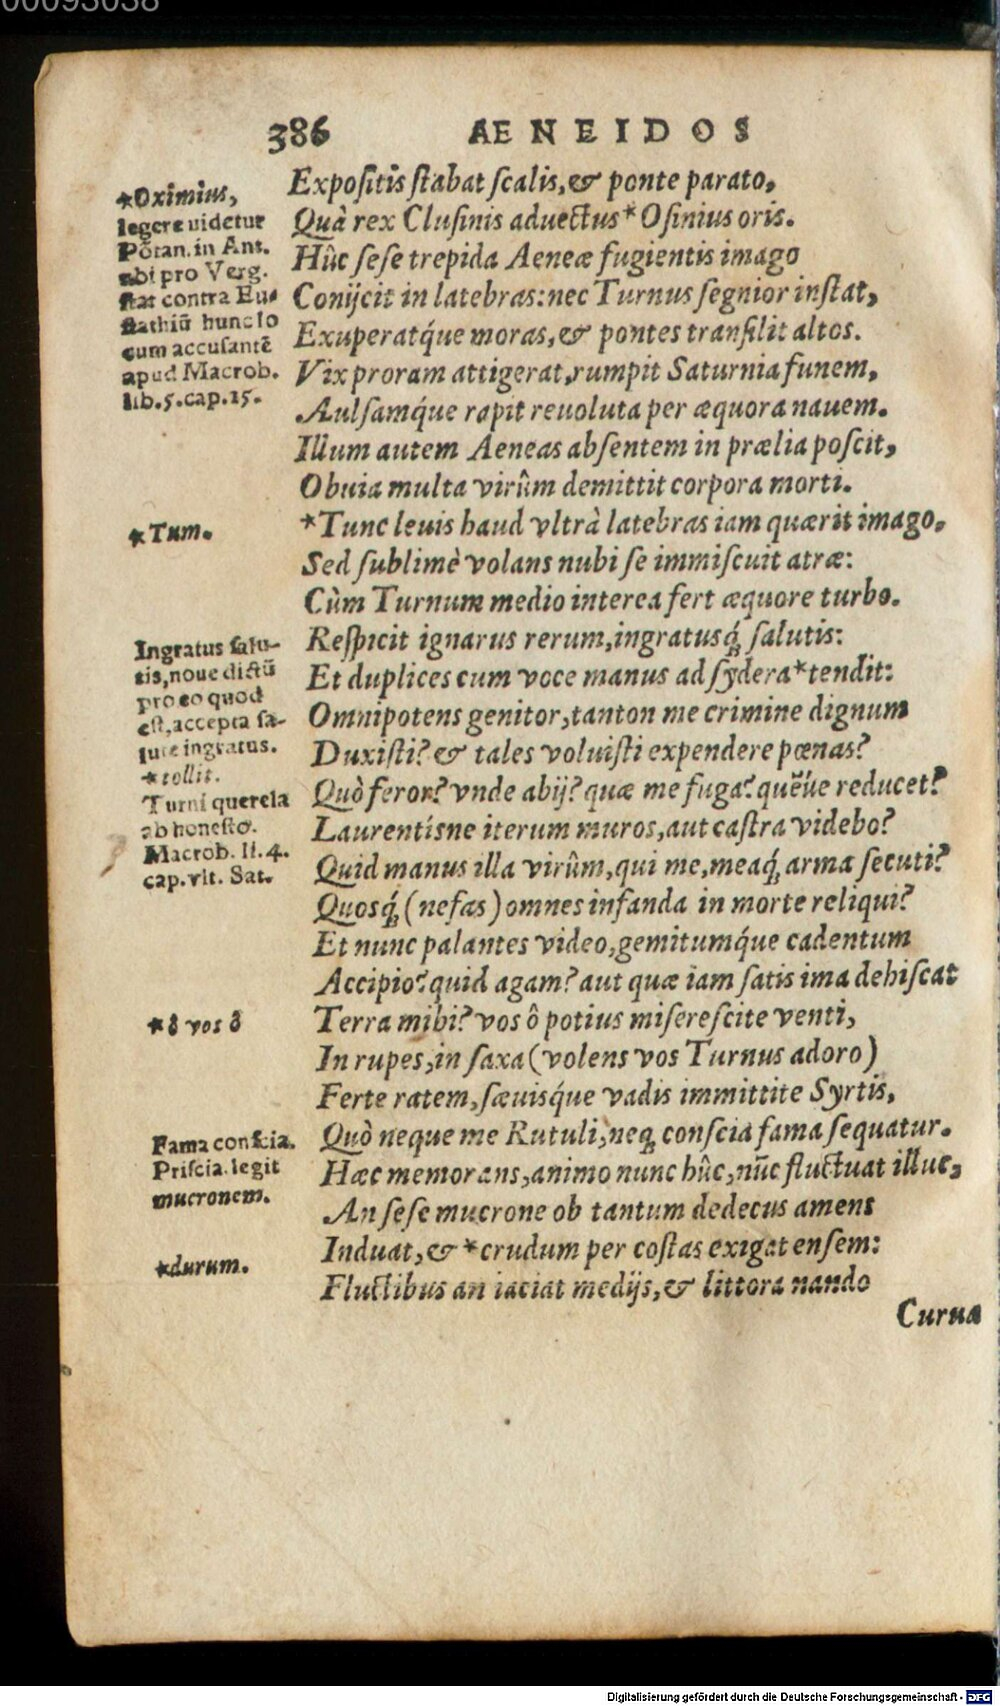 00093038
386 AENEIDOS
Expositis ſtabat ſcalis,& ponte parato,
Quà rex Cluſinis aduectus*Oſinius oris.
Hûc ſeſe trepida Aeneæ fugientis imago
Conijcit in latebras:nec Turnus ſegnior inſtat,
Exuperatq́ue moras,& pontes tranſilit altos.
Vix proram attigerat,rumpit Saturnia funem,
Aulſamq́ue rapit reuoluta per æquora nauem.
Illum autem Aeneas abſentem in prælia poſcit,
Obuia multa virûm demittit corpora morti.
*Tunc leuis haud vltrà latebras iam quærit imago,
Sed ſublimè volans nubi ſe immiſcuit atræ:
Cùm Turnum medio interea fert æquore turbo.
Reſpicit ignarus rerum,ingratusq́ ſalutis:
Et duplices cum voce manus ad ſydera*tendit:
Omnipotens genitor,tanton me crimine dignum
Duxiſti? & tales voluiſti expendere pœnas?
Quò feror? vnde abij? quæ me fuga? quẽúe reducet?
Laurentísne iterum muros,aut caſtra videbo?
Quid manus illa virûm,qui me,meaq́ arma ſecuti?
Quosq́ (nefas) omnes infanda in morte reliqui?
Et nunc palantes video,gemitumq́ue cadentum
Accipio? quid agam? aut quæ iam ſatis ima dehiſcat
Terra mihi? vos ô potius miſereſcite venti,
In rupes,in ſaxa (volens vos Turnus adoro)
Ferte ratem,ſæuisq́ue vadis immittite Syrtis,
Quò neque me Rutuli,neq; conſcia fama ſequatur.
Hæc memorans,animo nunc hûc,nũc fluctuat illuc,
An ſeſe mucrone ob tantum dedecus amens
Induat,& *crudum per coſtas exigat enſem:
Fluctibus an iaciat medijs,& littora nando
Curua
*Oximius,
legere uidetur
Põtan.in Ant.
ubi pro Verg.
ſtat contra Eu-
ſtathiũ hunc lo
cum accuſantẽ
apud Macrob.
lib.5.cap.15.
*Tum.
Ingratus ſalu-
tis,noue dictũ
pro eo quod
eſt,accepta ſa-
lute ingratus.
*tollit.
Turni querela
ab honeſto.
Macrob. li.4.
cap.vlt. Sat.
*ô vos ô
Fama conſcia.
Priſcia.legit
mucronem.
*durum.
Digitalisierung gefördert durch die Deutsche Forschungsgemeinschaft - DFG